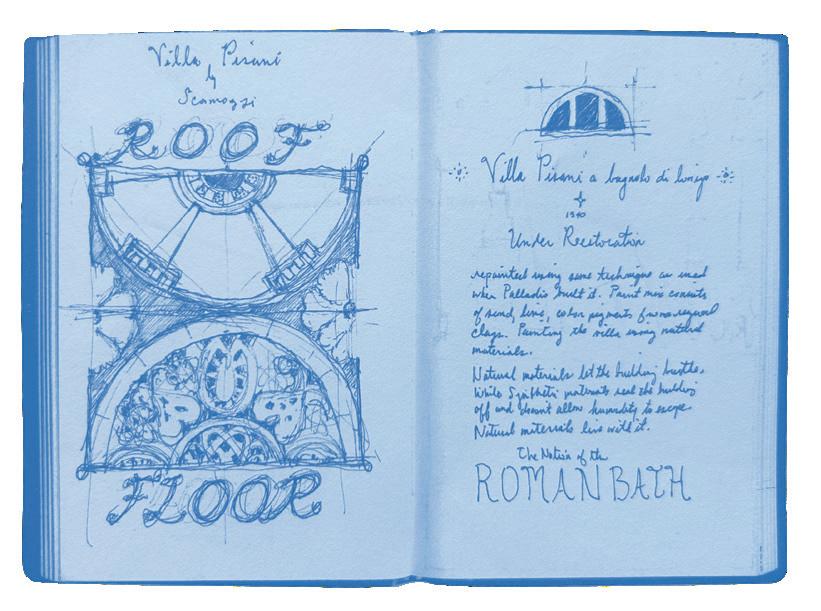 Villa Pisani
by
Scamozzi
ROOF
FLOOR
Villa Pisani a bagnolo di lonigo
1540
Under Restoration
repainted using same technique as used
when Palladio built it. Paint mix consists
of sand, lime, color pigments from regional
clays. Painting the villa using natural
materials.
Natural materials let the building breathe,
while Synthetic materials seal the building
off and doesnt allow humidity to escape.
Natural materials live with it.
The Notion of the
ROMAN BATH